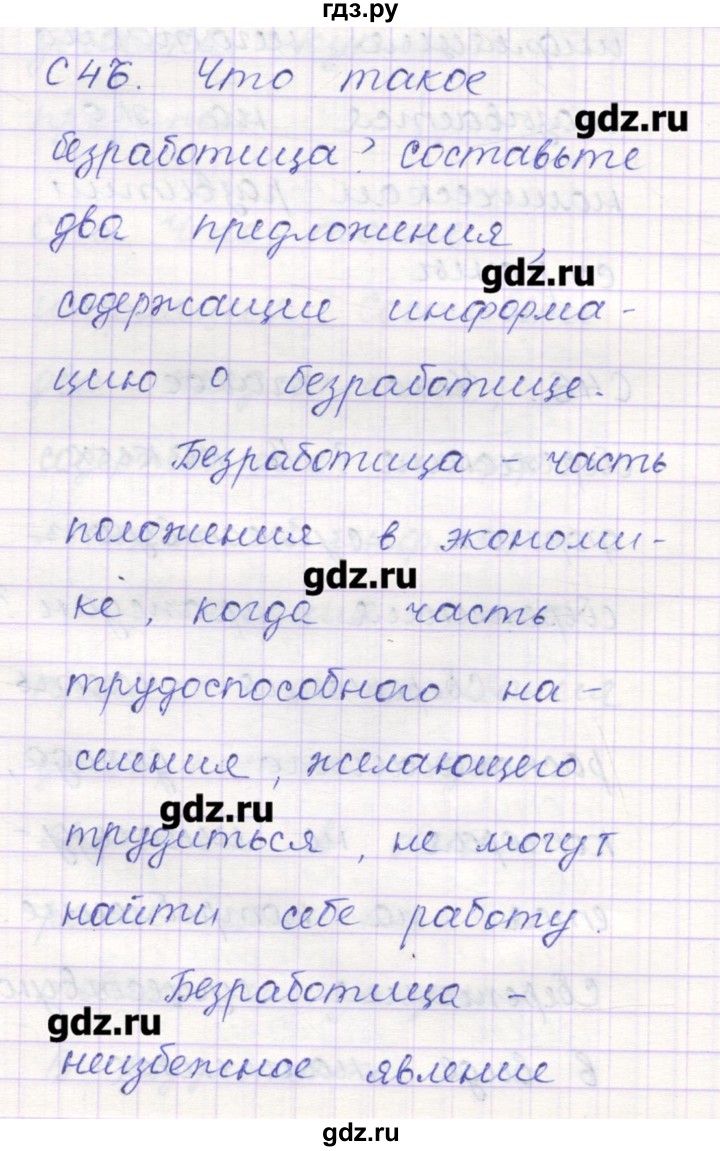 гдз.ру
С4Б. Что такое
gdz.ru
безработица? составьте
два предложения,
gdz.ru
содержащие информа-
цию о безработице.
Безработица - часть
положения в экономи-
gdz.ru
ке, когда часть
трудоспособного на-
селения, желающего
gdz.ru
трудиться, не могут
найти себе работу.
Безработица -
gdz.ru
неизбежное явление
gdz.ru